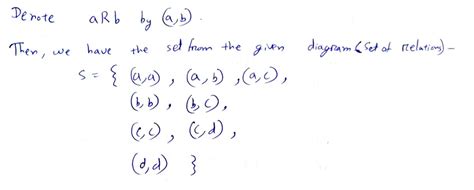 Denote aRb by (a,b).
Then, we have the set from the given diagram (set of relation) -
S = { (a,a), (a,b), (a,c),
(b,b), (b,c),
(c,c), (c,d),
(d,d) }